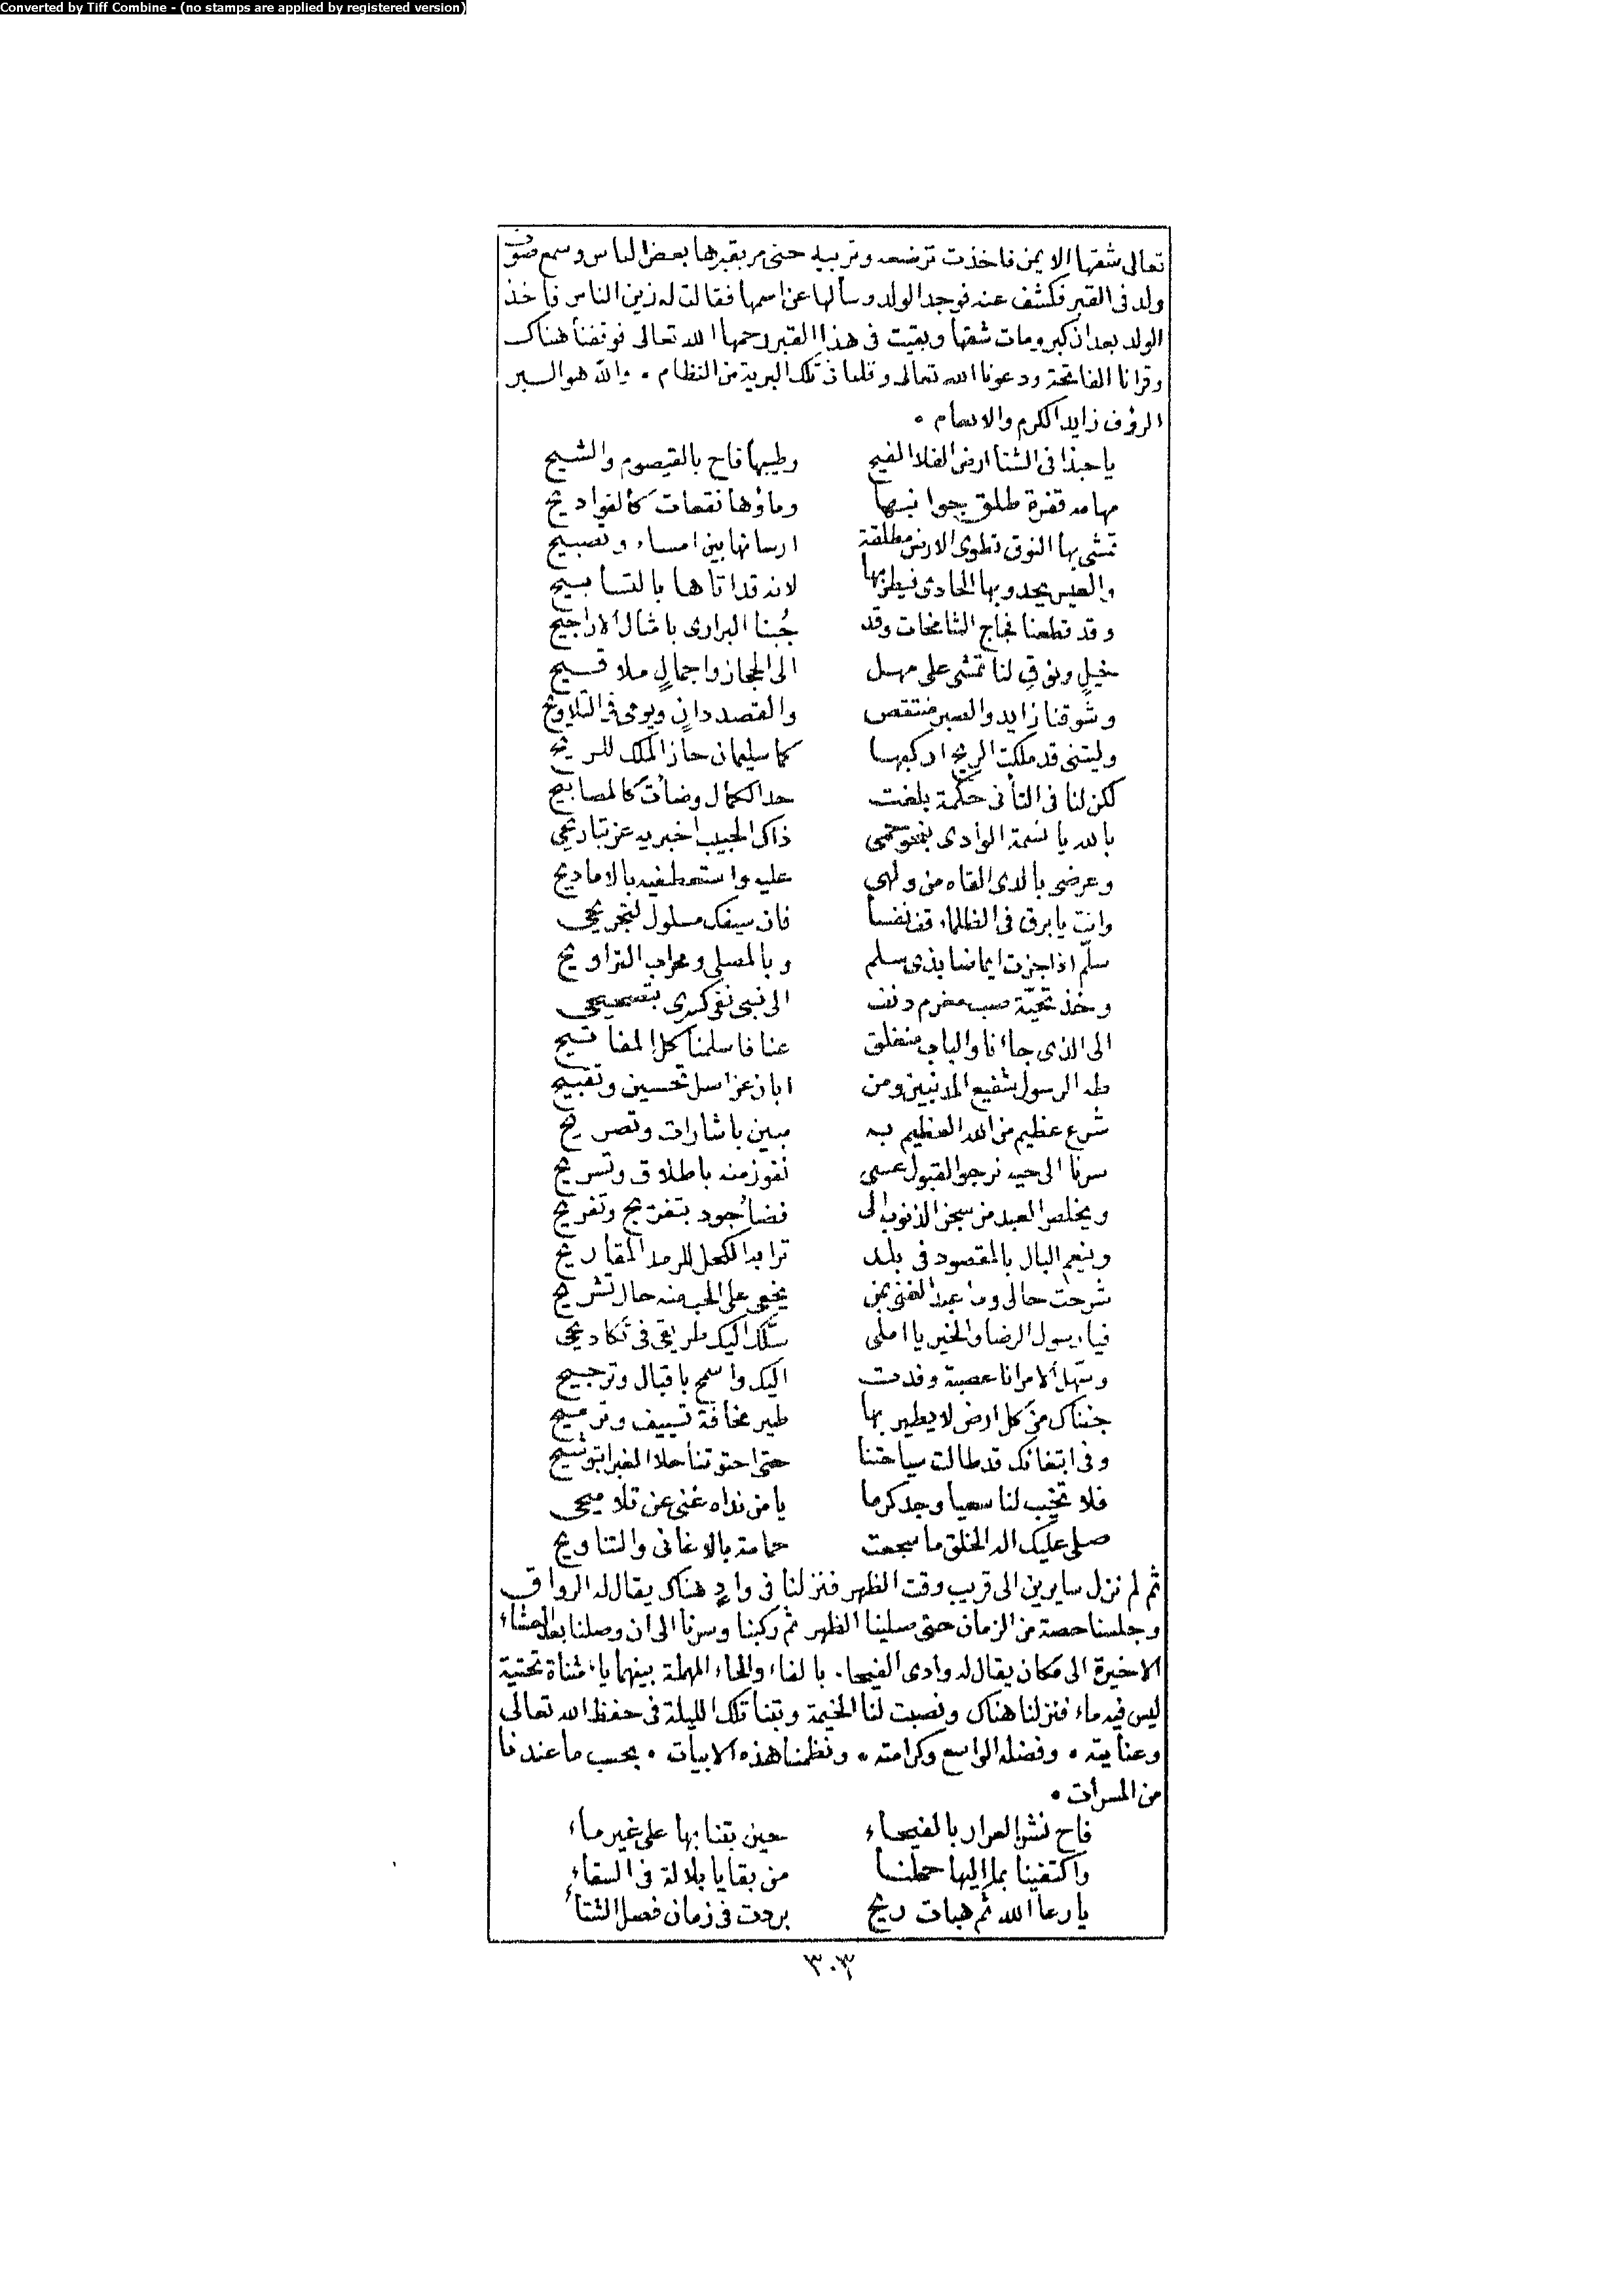 Converted by Tiff Combine - (no stamps are applied by registered version)
تعالى شقها الايمن فاخذت ترضعه وتربيه حتى مر بقبرها بعض الناس وسمع صوت
ولد فى القبر فكشف عنه فوجد الولد وسألها عن اسمها فقالت له زين الناس فأخذ
الولد بعد ان كبر ومات شقها وبقيت فى هذا القبر رحمها الله تعالى فوقفنا هناك
وقرانا الفاتحة ودعونا الله تعالى وقلنا فى تلك البرية من النظام • والله هو البر
الرؤف زايد الكرم والانعام •
ياحبذا فى الشتا ارض الفلا الفيح وطيبها فاح بالقيصوم والشيح
مهامه قفرة طلق بها وماؤها نقعات كالفواديح
تمشى بها النوق تطوى الارض مطلقة ارسانها بين امساء وتصبيح
والعيس يحدو بها الحادى فيطربها لانه قد اتاها بالتسابيح
وقد قطعنا فجاج الشامخات وقد جُبنا البرارى بامثال الاراجيح
خيلٍ ونوقٍ لنا تمشى على مهل الى الحجاز واجمالٍ ملاقيح
وشوقنا زايد والصبر منتقص والقصد دانٍ ويومى فى التلاويح
وليتنى قد ملكت الريح اركبها كما سليمان حاز الملك للريح
لكن لنا فى التأنى حكمة بلغت حد الكمال وضأت كالمصابيح
بالله يا نسمة الوادى ذاك الحبيب اخبريه عن تباريحى
وعرضى بالذى القاه من ولهى عليه واستعطفيه بالاماديح
وانت يا برق فى الظلماء قف نفسا فان سيفك مسلول لتجريحى
سلّم اذا جزت ايماضا بذى سلم وبالمصلى ومحراب التراويح
وخذ تحيّة صب مغرم دنف الى نبى نفى كسرى بتصحيحى
الى الذى جاءنا والباب منغلق عنا فاسلمنا كل المفاتيح
طه الرسول شفيع المذنبين ومن ابان عن اصل تحسين وتقبيح
شرع عظيم من الله العظيم به مبين باشارات وتصريح
سرنا الى حيه نرجو القبول عسى نفوز منه باطلاق وتسريح
ويخلص العبد من سجن الذنوب الى فضاء جود بتفريج وتفريح
وينعم البال بالمقصود فى بلد ترابه الكحل للرمد المقاريح
شرحت حالى وما عبد الغنى بمن يخفى على الحب منه حال تشريح
فيا رسول الرضا والخير يا املى سلك اليك طريقى فى تكاديحى
وسهّل الامر انا عصبة وفدت اليك واسمح باقبال وترجيح
جئناك من كل ارض لا يطير بها طير مخافة تسييف وترميح
وفى ابتغائك قد طالت سياحتنا حتى احتوتنا ملا الغبرا بتوشيح
فلا تخيّب لنا سعيا وجد كرما يا من نداه غنى عن تلاميحى
صلى عليك اله الخلق ما سجعت حمامة بالاغانى والتناويح
ثم لم نزل سايرين الى قريب وقت الظهر فنزلنا فى وادٍ هناك يقال له الرواق
وجلسنا حصة من الزمان حتى صلينا الظهر ثم ركبنا وسرنا الى ان وصلنا بعد العشاء
الاخيرة الى مكان يقال له وادى الفيحاء بالفاء والحاء المهملة بينهما ياء مثناة تحتية
ليس فيه ماء فنزلنا هناك ونصبت لنا الخيمة وبتنا تلك الليلة فى حفظ الله تعالى
وعنايته • وفضله الواسع وكرامته • ونظمنا هذه الابيات • بحسب ما عندنا
من المسرات •
فاح نشر العرار بالفيحاء حين بتنا بها على غير ماء
واكتفينا بما اليها حملنا من بقايا بلالة فى السقاء
يا رعا الله ثم هبات ريح بردت فى زمان فصل الشتاء
٣٠٣